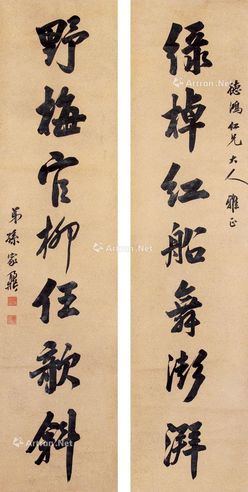 德鸿仁兄大人雅正
绿棹红船舞澎湃
野梅官柳任欹斜
弟孫家鼐
Artron.Net
Artron.Net
Artron.Net
Artron.Net